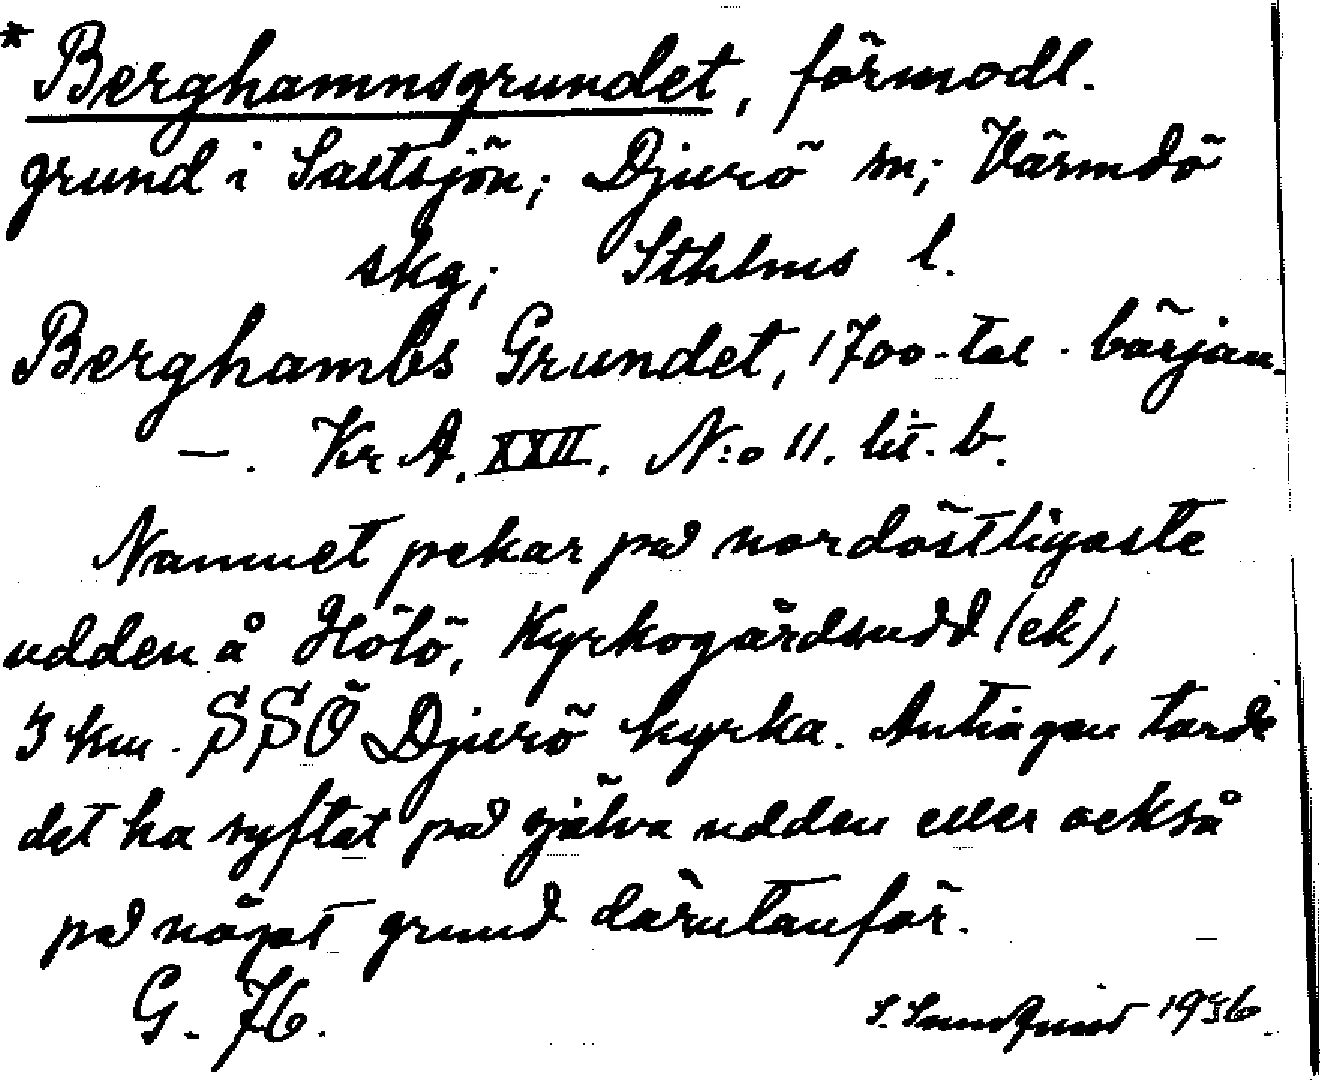 * Berghamnsgrundet, förmodl.
grund i Saltsjön; Djurö sn; Värmdö
skg; Sthlms l.
Berghambs Grundet, 1700-tal. början.
—. KrA. XXII. N:o 11. lit. b.
Namnet pekar på nordöstligaste
udden å Hölö, Kyrkogårdsudd (ek),
3 km. SSÖ Djurö kyrka. Antingen torde
det ha syftat på själva udden eller också
på något grund därutanför.
G. 76.
S. Sundqvist 1936